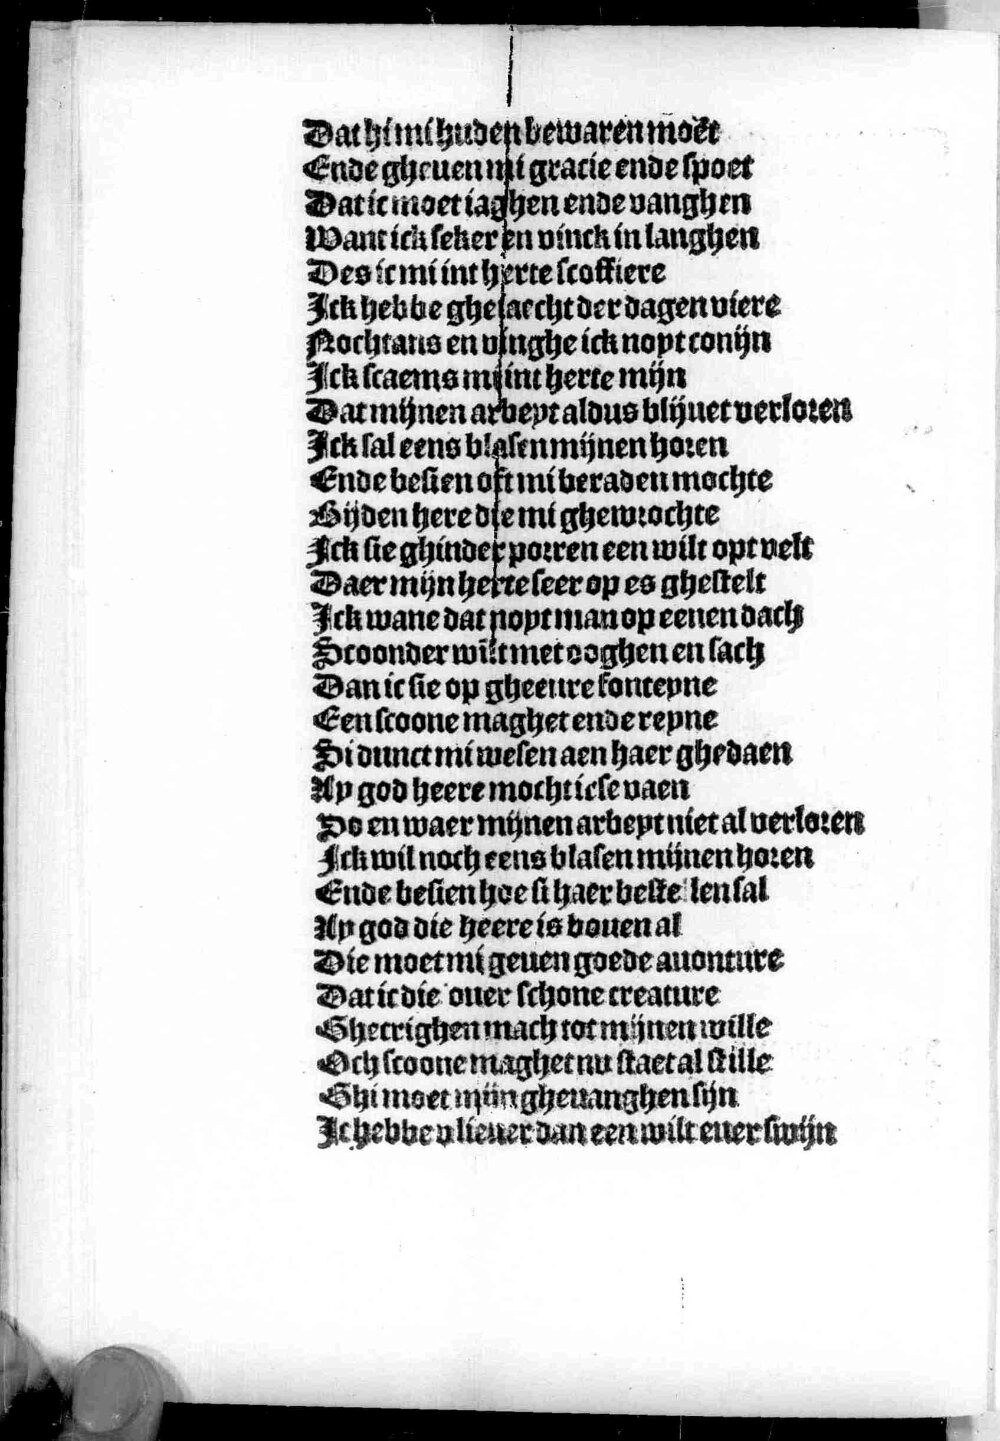 Dat hi mi huden bewaren moet
Ende gheuen mi gracie ende spoet
Dat ic moet iaghen ende vanghen
Want ick seker en vinck in langhen
Des ic mi int herte scoffiere
Ick hebbe ghe iaecht der dagen viere
Nochtans en vinghe ick noyt conijn
Ick scaems mi int herte mijn
Dat mijnen arbeyt aldus blijuet verloren
Ick sal eens blasen mijnen horen
Ende besien oft mi beraden mochte
Bijden here die mi ghewrochte
Ick sie ghinder porren een wilt opt velt
Daer mijn herte seer op es ghestelt
Ick wane dat noyt man op eenen dach
Scoonder wilt met ooghen en sach
Dan ic sie op gheeure fonteyne
Een scoone maghet ende reyne
Si dunct mi wesen aen haer ghedaen
Ay god heere mocht icse vaen
So en waer mijnen arbeyt niet al verloren
Ick wil noch eens blasen mijnen horen
Ende besien hoe si haer bestellen sal
Ay god die heere is bouen al
Die moet mi geuen goede auonture
Dat ic die ouer schone creature
Ghecrighen mach tot mijnen wille
Och scoone maghet nu staet al stille
Ghi moet mijn gheuanghen sijn
Ic hebbe v lieuer dan een wilt euer swijn